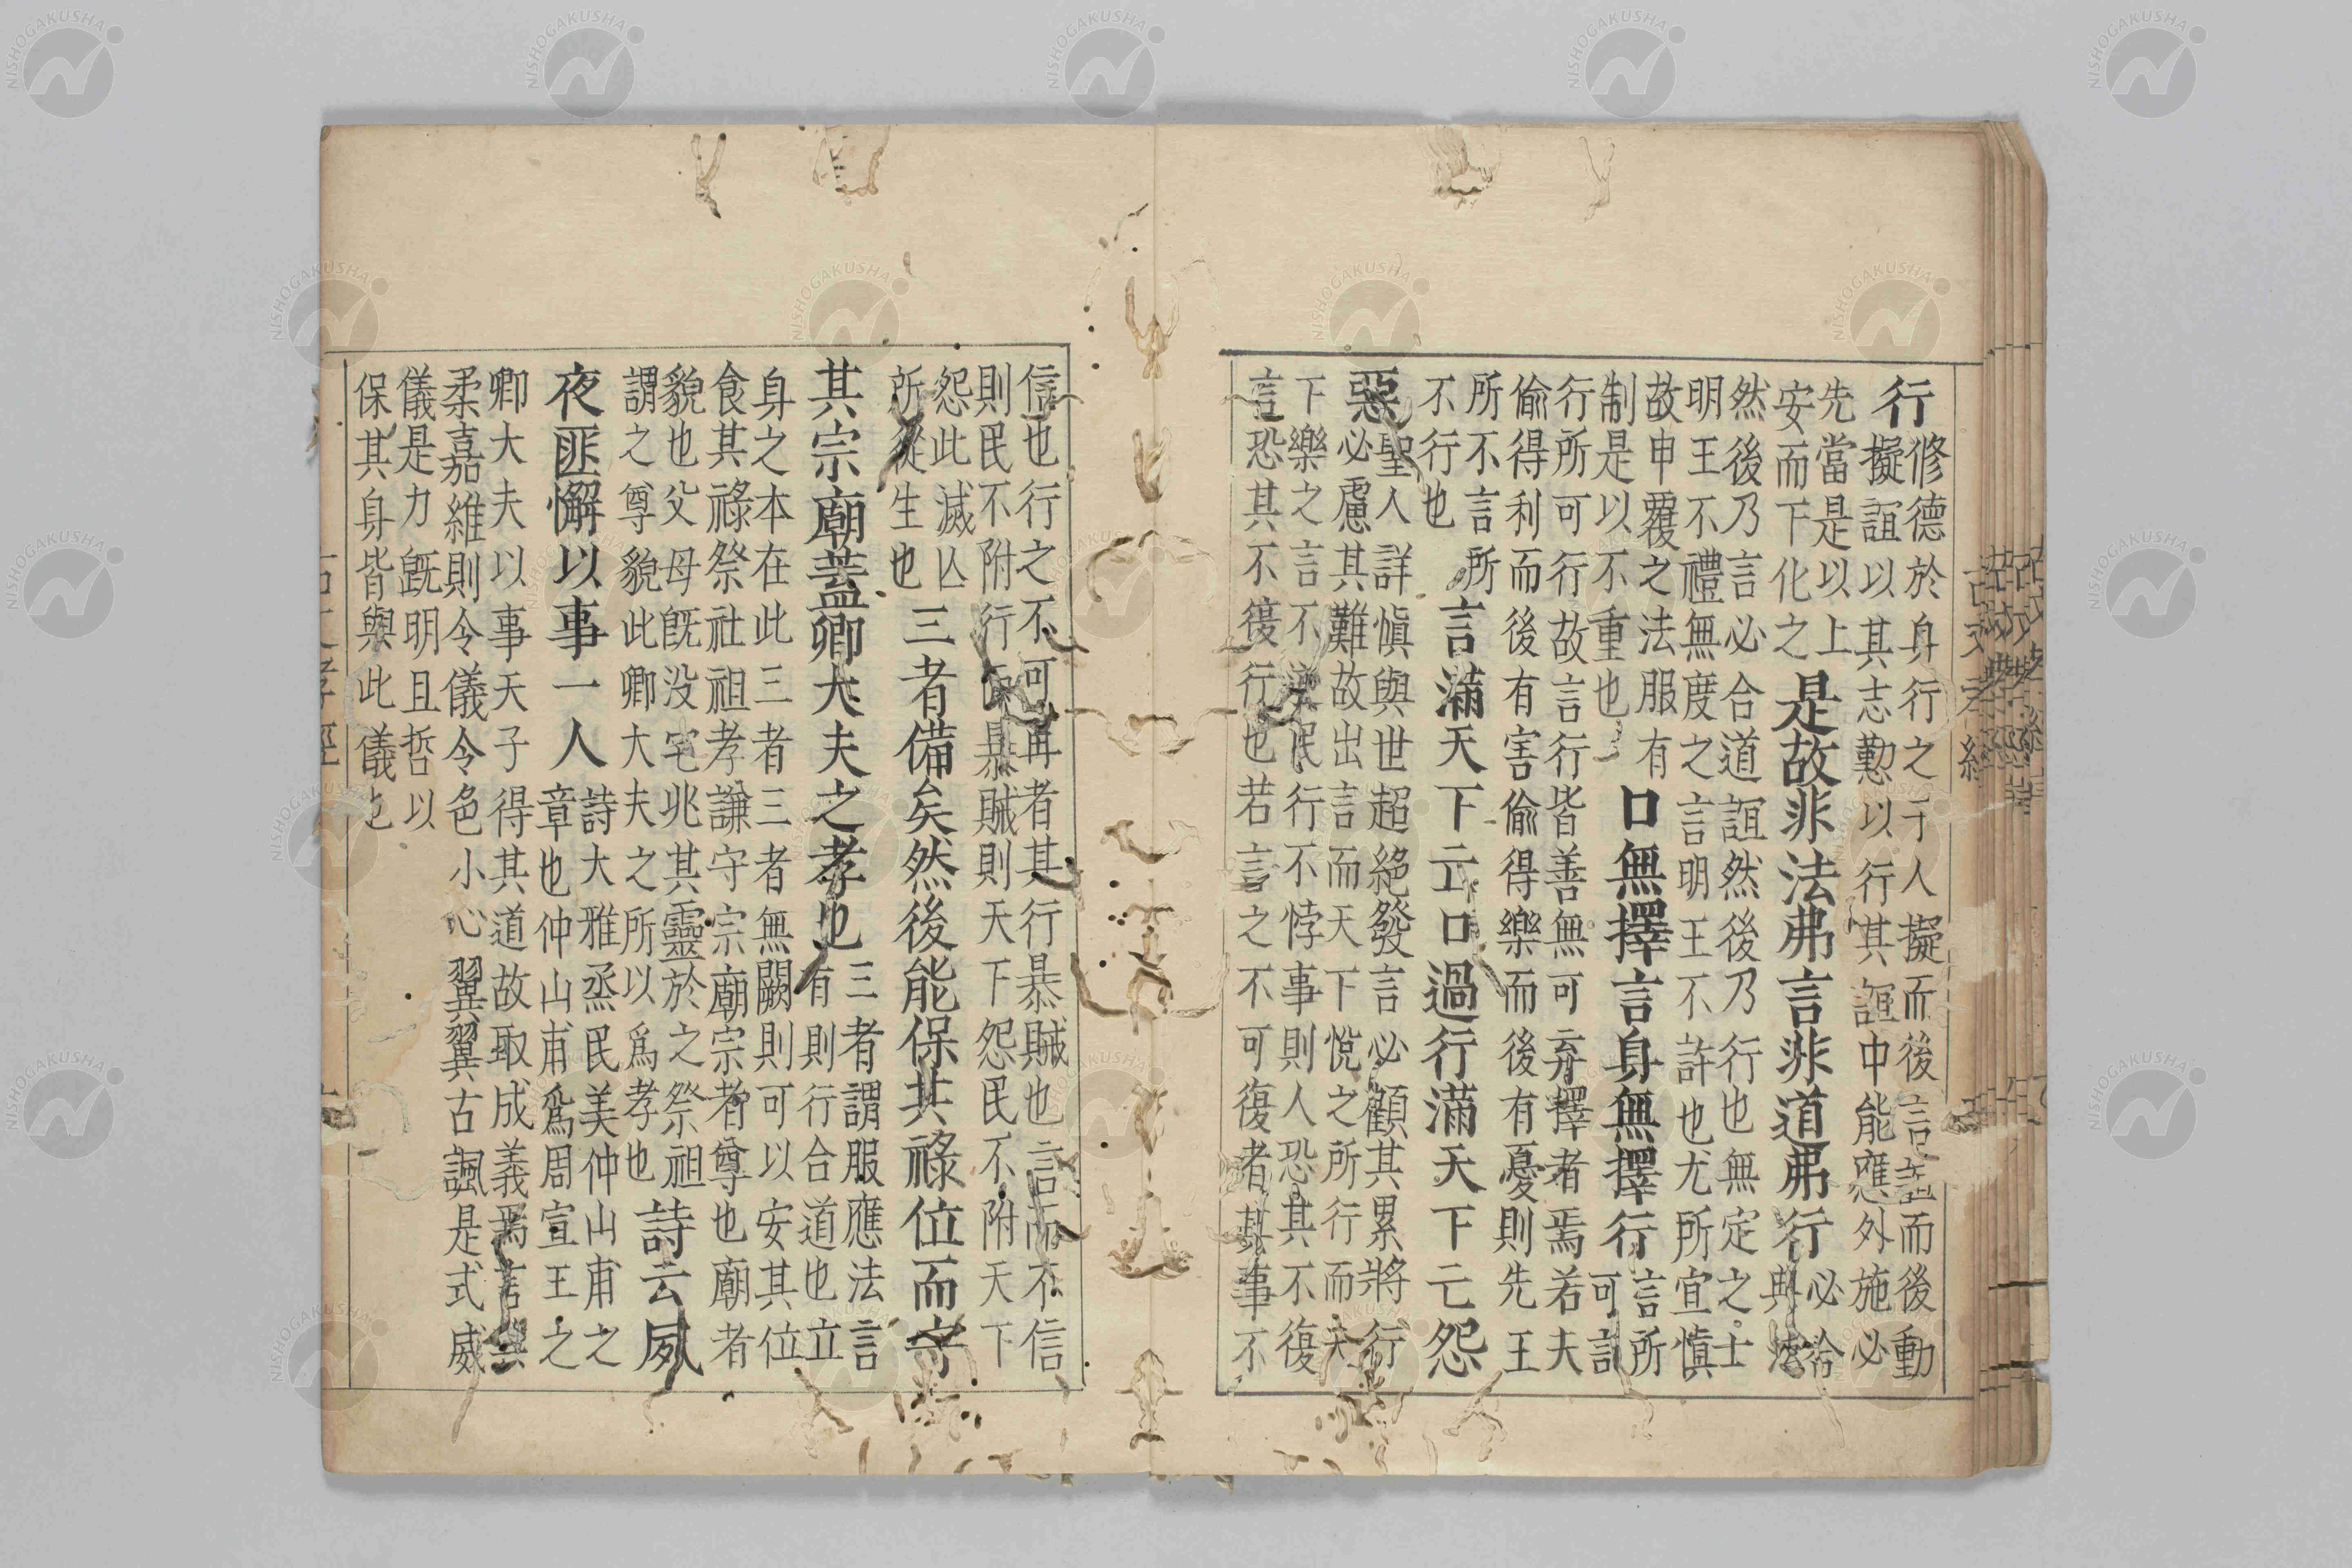 行修德於身行之于人擬而後言議而後動
擬誼以其志勤以行其誼中能應外施必
先當是以上
安而下化之是故非法弗言非道弗行必洽
典法
然後乃言必合道誼然後乃行也無定之士
明王不禮無度之言明王不許也尤所宜慎
故申覆之法服有
制是以不重也口無擇言身無擇行言所
可言
行所可行故言行皆善無可弃擇者焉若夫
偷得利而後有害偷得樂而後有憂則先王
所不言所
不行也言滿天下亡口過行滿天下亡怨
惡聖人詳慎與世超絕發言必顧其累將行
必慮其難故出言而天下悅之所行而天
下樂之言不逆民行不悖事則人恐其不復
言恐其不復行也若言之不可復者其事不
信也行之不可再者其行暴賊也言而不信
則民不附行而暴賊則天下怨民不附天下
怨此滅亾
所從生也三者備矣然後能保其祿位而守
其宗廟蓋卿大夫之孝也三者謂服應法言
有則行合道也立
身之本在此三者三者無闕則可以安其位
食其祿祭社祖孝謙守宗廟宗者尊也廟者
貌也父母既没宅兆其靈於之祭祖
謂之尊貌此卿大夫之所以爲孝也詩云夙
夜匪懈以事一人詩大雅烝民美仲山甫之
章也仲山甫爲周宣王之
卿大夫以事天子得其道故取成義焉言
柔嘉維則令儀令色小心翼翼古諷是式威
儀是力既明且哲以
保其身皆與此儀也